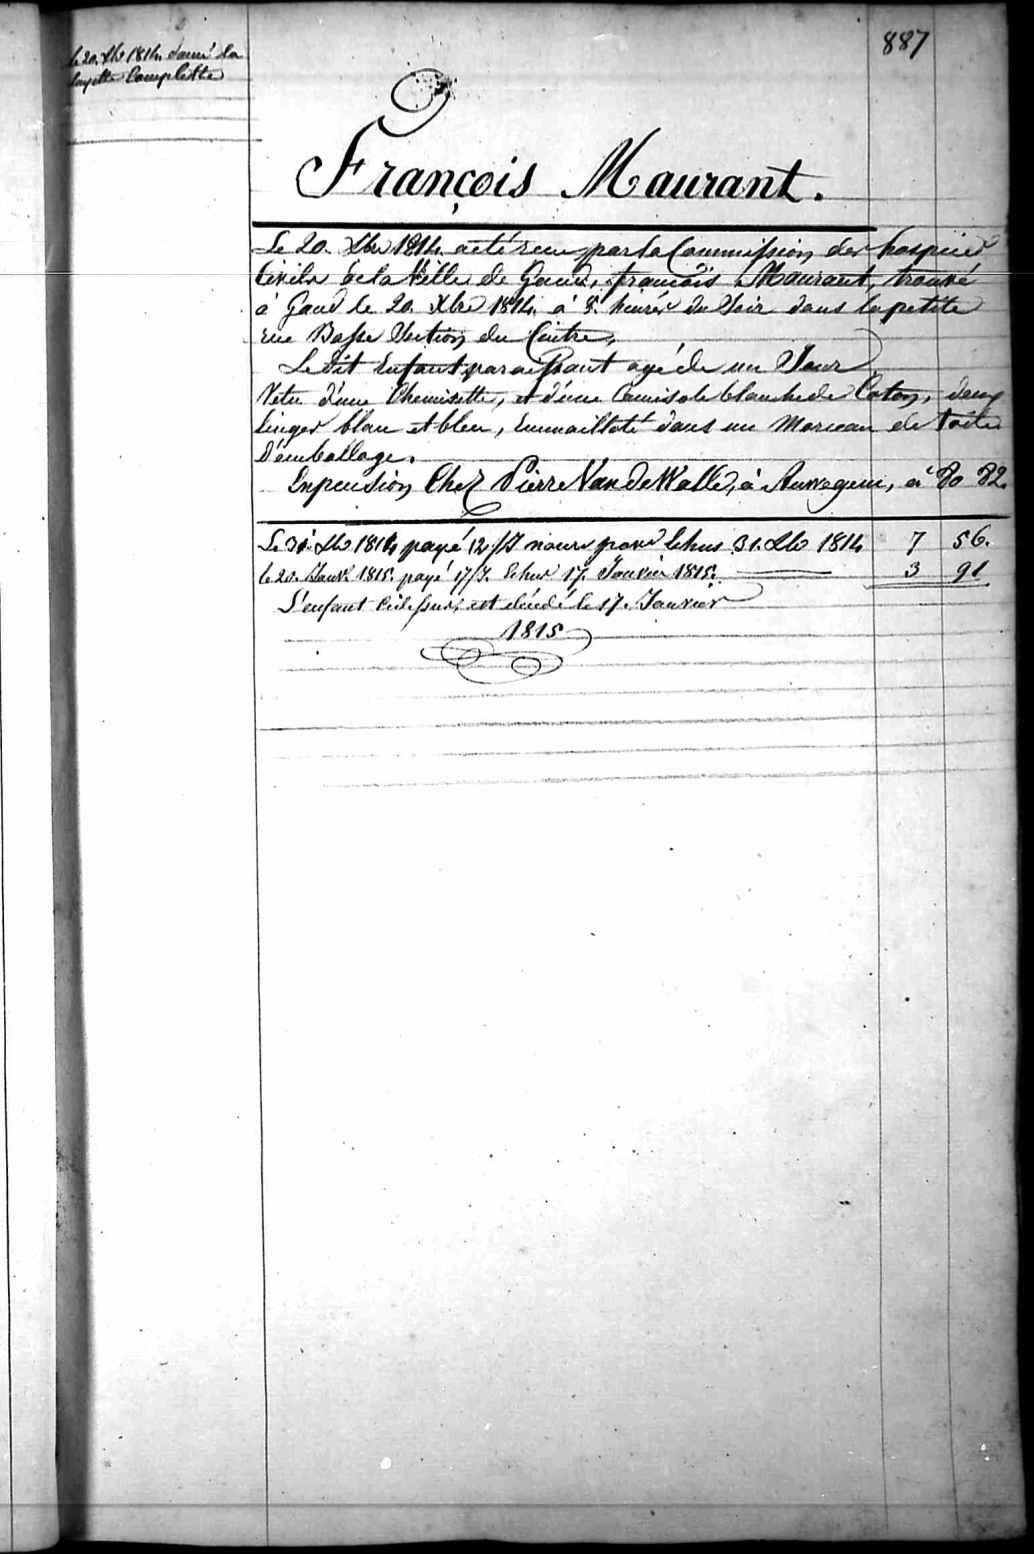 887
le 20. Xbr 1814. donné la
layette Complette
François Maurant.
Le 20. Xbre 1814. a été recu par la Commission des hospices
Civils de la Ville de Gand, francois Maurant, trouvé
à Gand le 20. Xbre 1814. à 8. heures du Soir dans la petite
rue Basse Section du Centre.
Le dit Enfant paraissant agé de un Jour
Vetu d'une Chemisette, et d'une Camisole blanche de Coton, deux
linges blan et bleu, Emmailloté dans un Morceau de toile
D'emballage.
En pension Chez Pierre Van de Walle, à
Le 31 Xbr 1814 payé 12/J nours pour Echus 31. Xbr 1814 7 56.
le 20. Janv. 1815. payé 17/J. Echus 17. Janvier 1815. 3 91
L'enfant Ci dessus, est décédé le 17. Janvier
1815